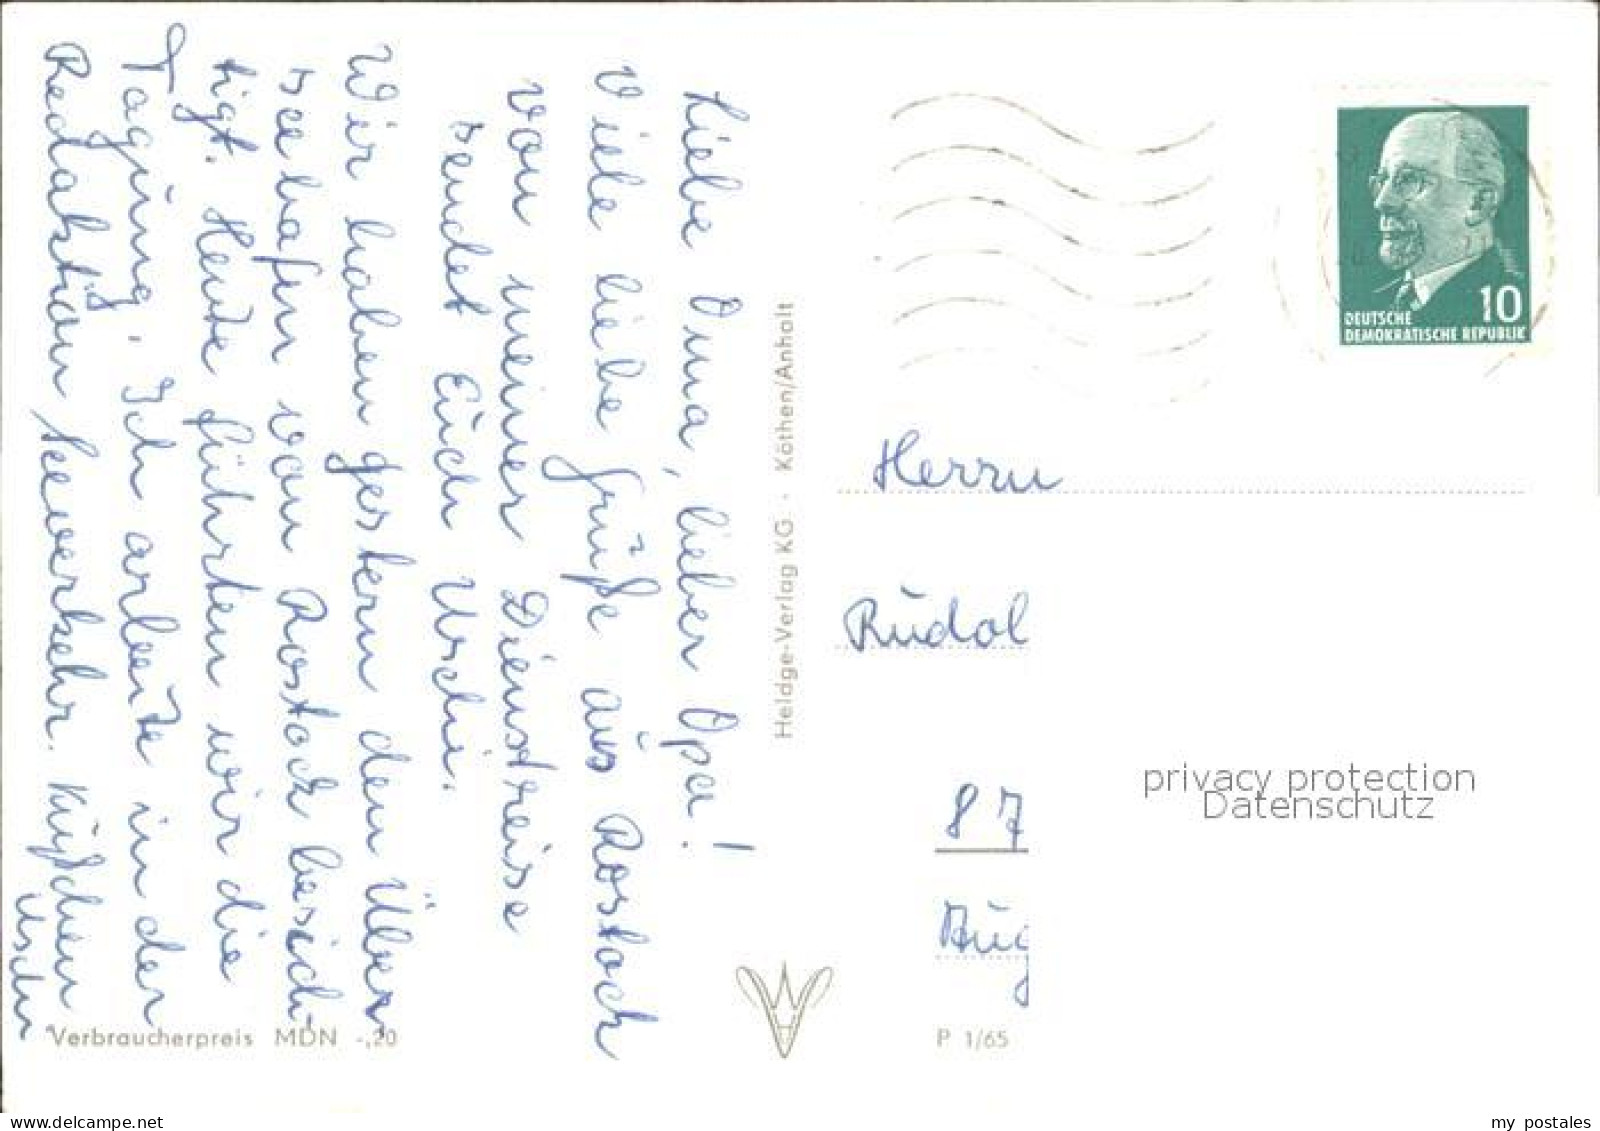 Liebe Oma, lieber Opa!
Viele liebe Grüße aus Rostock
von meiner Dienstreise
sendet Euch Uschi.
Wir haben gestern den Über
seehafen von Rostock besich-
tigt. Heute führten wir die
Tagung. Ich arbeite in der
Redaktion Seeverkehr. Küßchen
Uschi
Verbraucherpreis MDN -,20
Heldge-Verlag KG · Köthen/Anhalt
10
DEUTSCHE
DEMOKRATISCHE REPUBLIK
Herrn
Rudol
87
Aug
P 1/65
privacy protection
Datenschutz
www.delcampe.net
my_postales